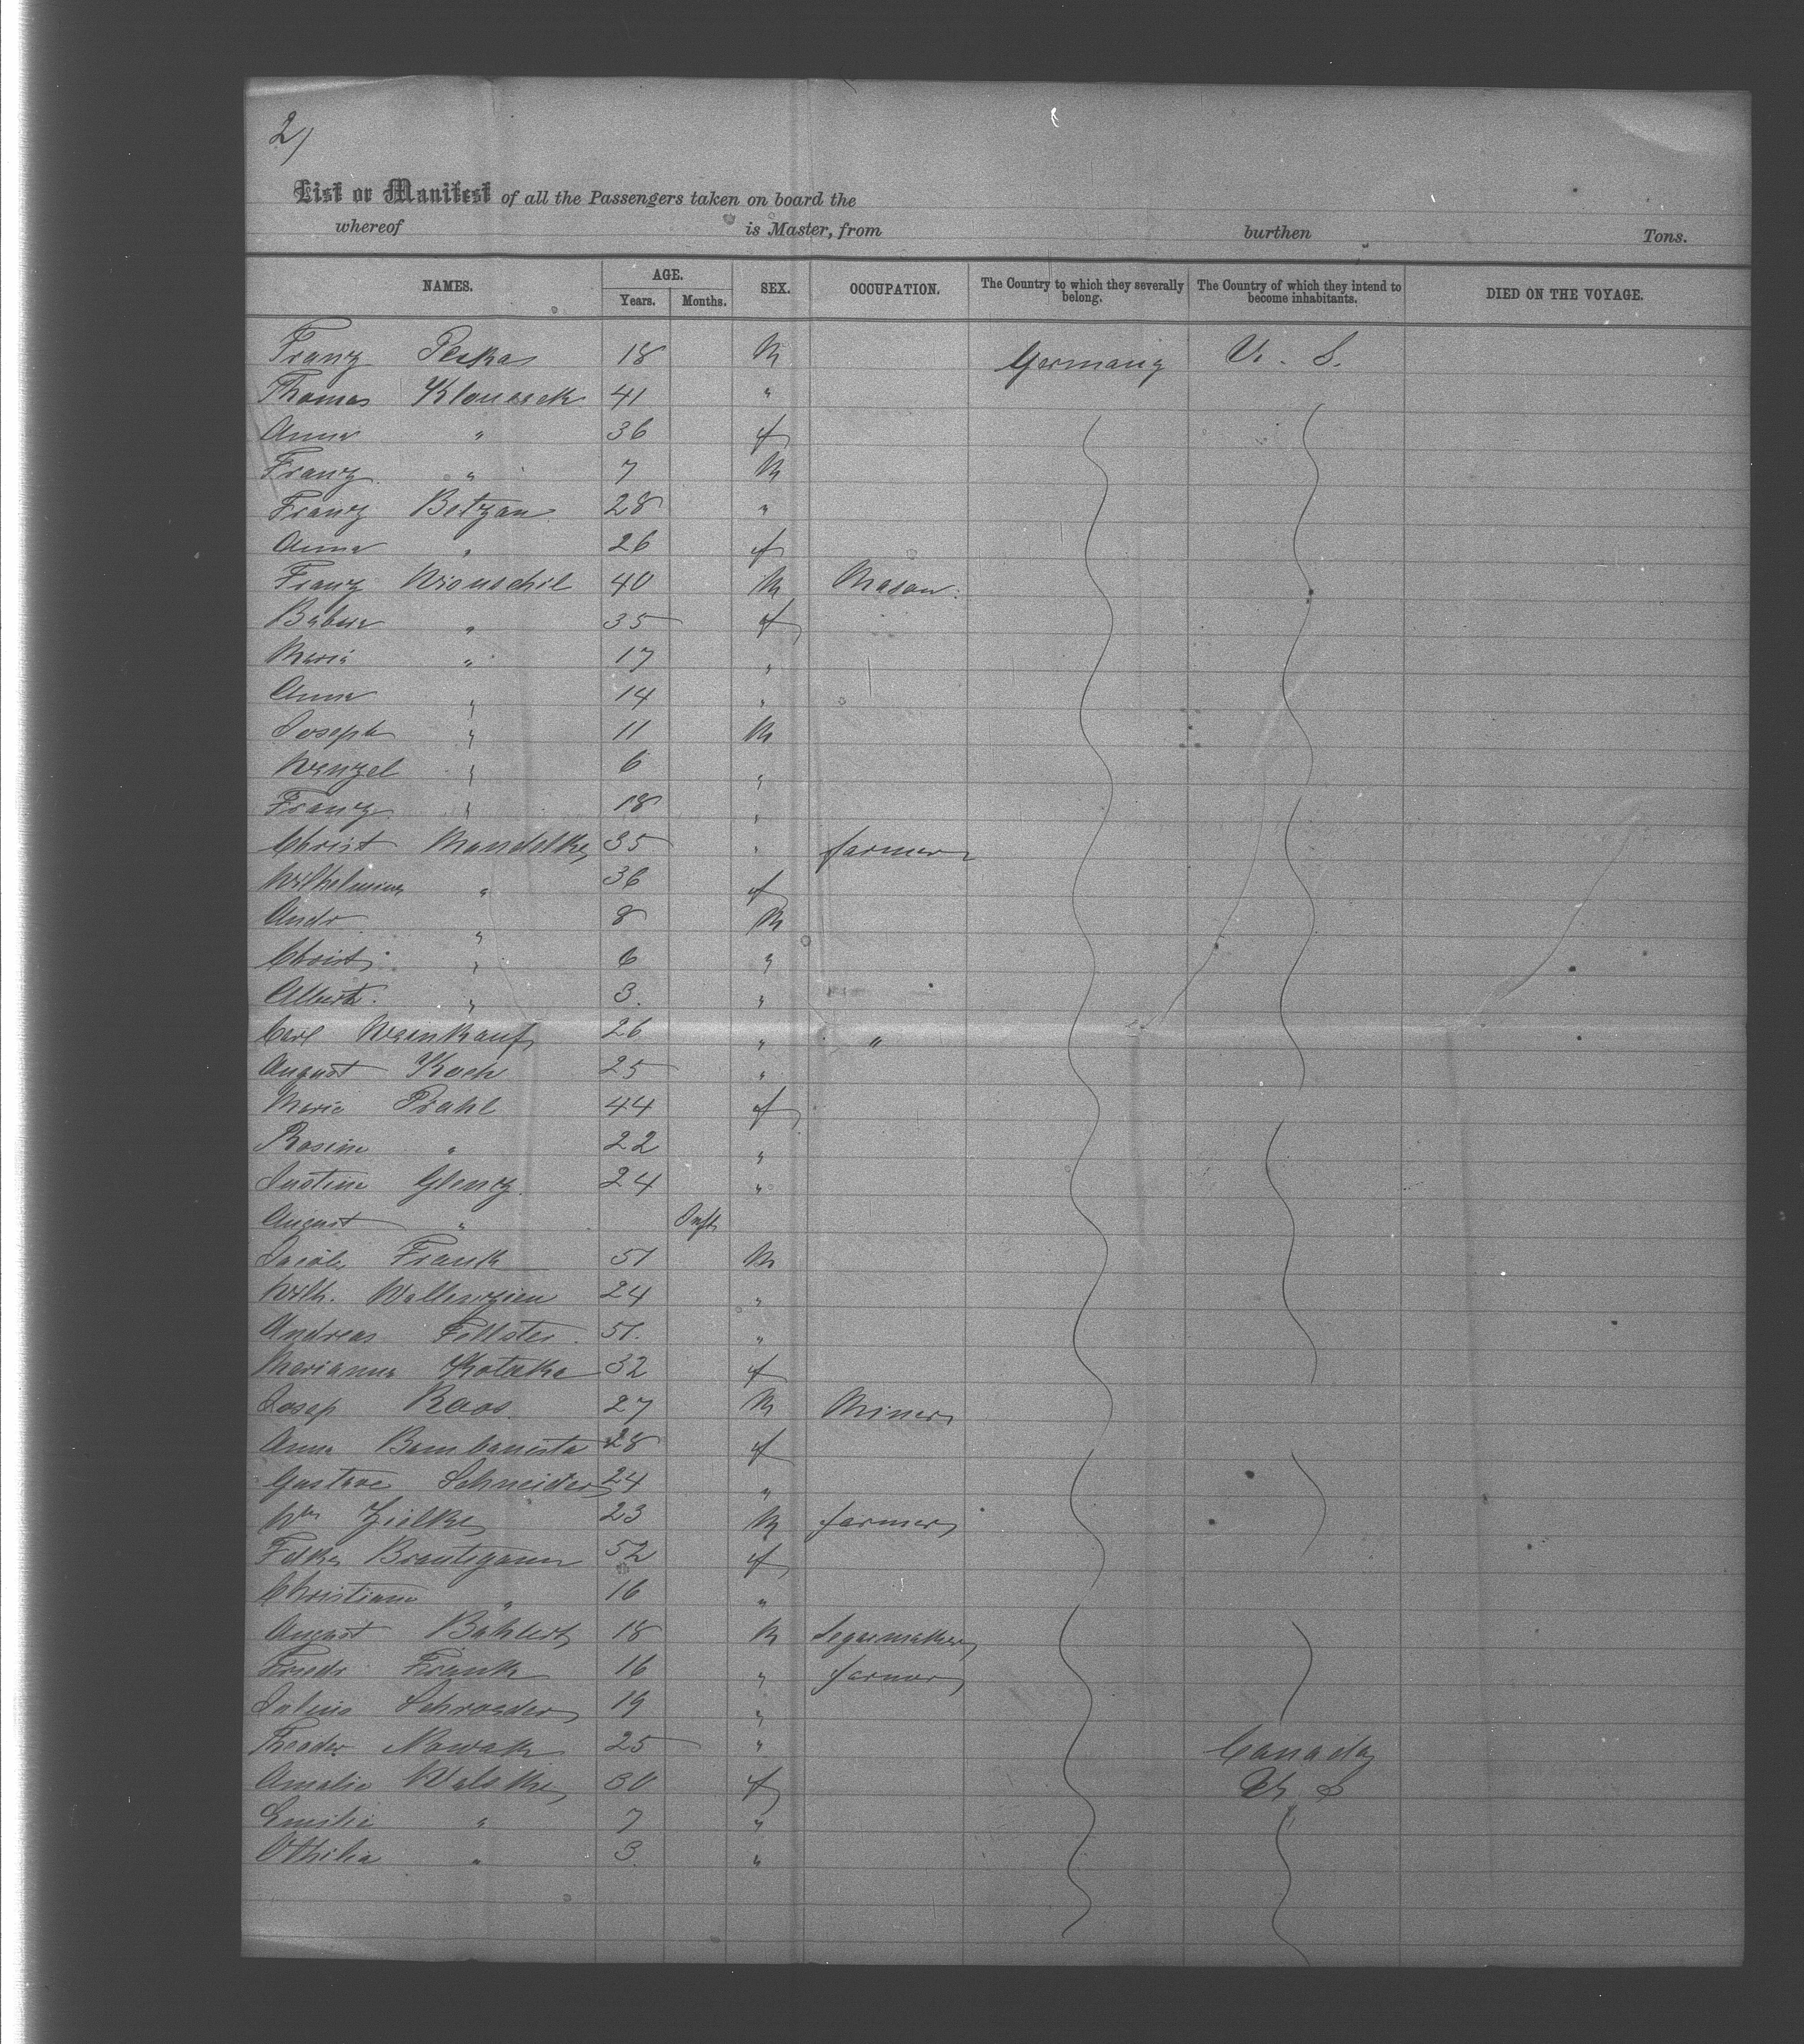 2/
List or Manifest of all the Passengers taken on board the
whereof is Master, from burthen Tons.
NAMES. AGE. Years. Months. SEX. OCCUPATION. The Country to which they severally belong. The Country of which they intend to become inhabitants. DIED ON THE VOYAGE.
Franz Peska 18 M Germany U. S.
Thomas 41 "
Anna " 36 f
Franz " 7 M
Franz Betzan 28 "
Anna " 26 f
Franz 40 M Mason
" 35 f
Maria " 17 "
Anna " 14 "
Joseph " 11 M
Wenzel " 6 "
Franz " 18 "
Christ Mandelke 35 " farmer
Wilhelmina " 36 f
Andr " 8 M
Christ. " 6 "
Albert. " 3. "
Carl Weinkauf 26 " "
August Koch 25 "
Marie Prahl 44 f
Rosine " 22 "
Justine Glenz 24 "
August " Inft
Jacob Frank 51 M
Wilh. Wallenzien 24 "
Andreas 51. "
Marianna 32 f
Josep Raos. 27 M Miner
Anna 28 f
Gustave Schneider 24 "
Wm Zielke 23 M farmer
52 f
Christiane " 16 "
August 18 M Segarmaker
Friedr Frank 16 " farmer
Julius Schroeder 19 "
Theodor Nowak 25 " Canada
Amalie 30 f U S
Emilie " 7 "
Othilia " 3 "